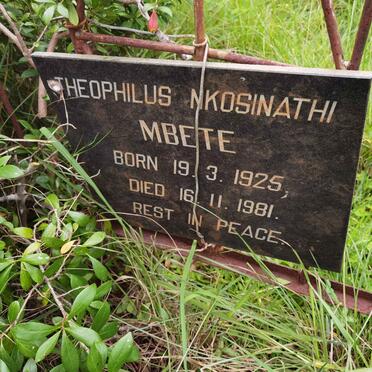 THEOPHILUS NKOSINATHI
MBETE
BORN 19. 3. 1925,
DIED 16. 11. 1981.
REST IN PEACE.